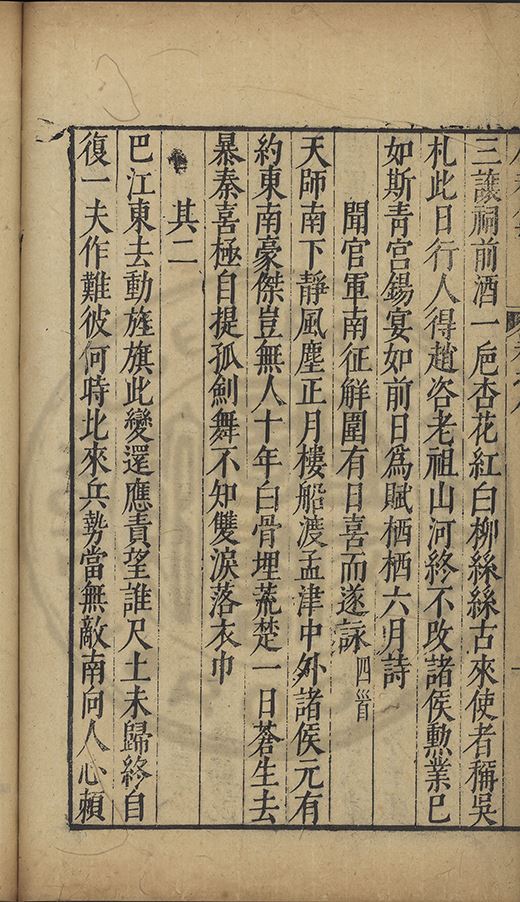 三護祠前酒一巵杏花紅白柳絲絲古來使者稱吳
札此日行人得趙咨老祖山河終不改諸侯勲業已
如斯青宮錫宴如前日爲賦栖栖六月詩
聞官軍南征觧圍有日喜而遂詠四首
天師南下靜風塵正月樓船渡孟津中外諸侯元有
約東南豪傑豈無人十年白骨埋荒楚一日蒼生去
暴秦喜極自提孤劍舞不知雙淚落衣巾
其二
巴江東去動旌旗此變還應責望誰尺土未歸終自
復一夫作難彼何時比來兵勢當無敵南向人心賴